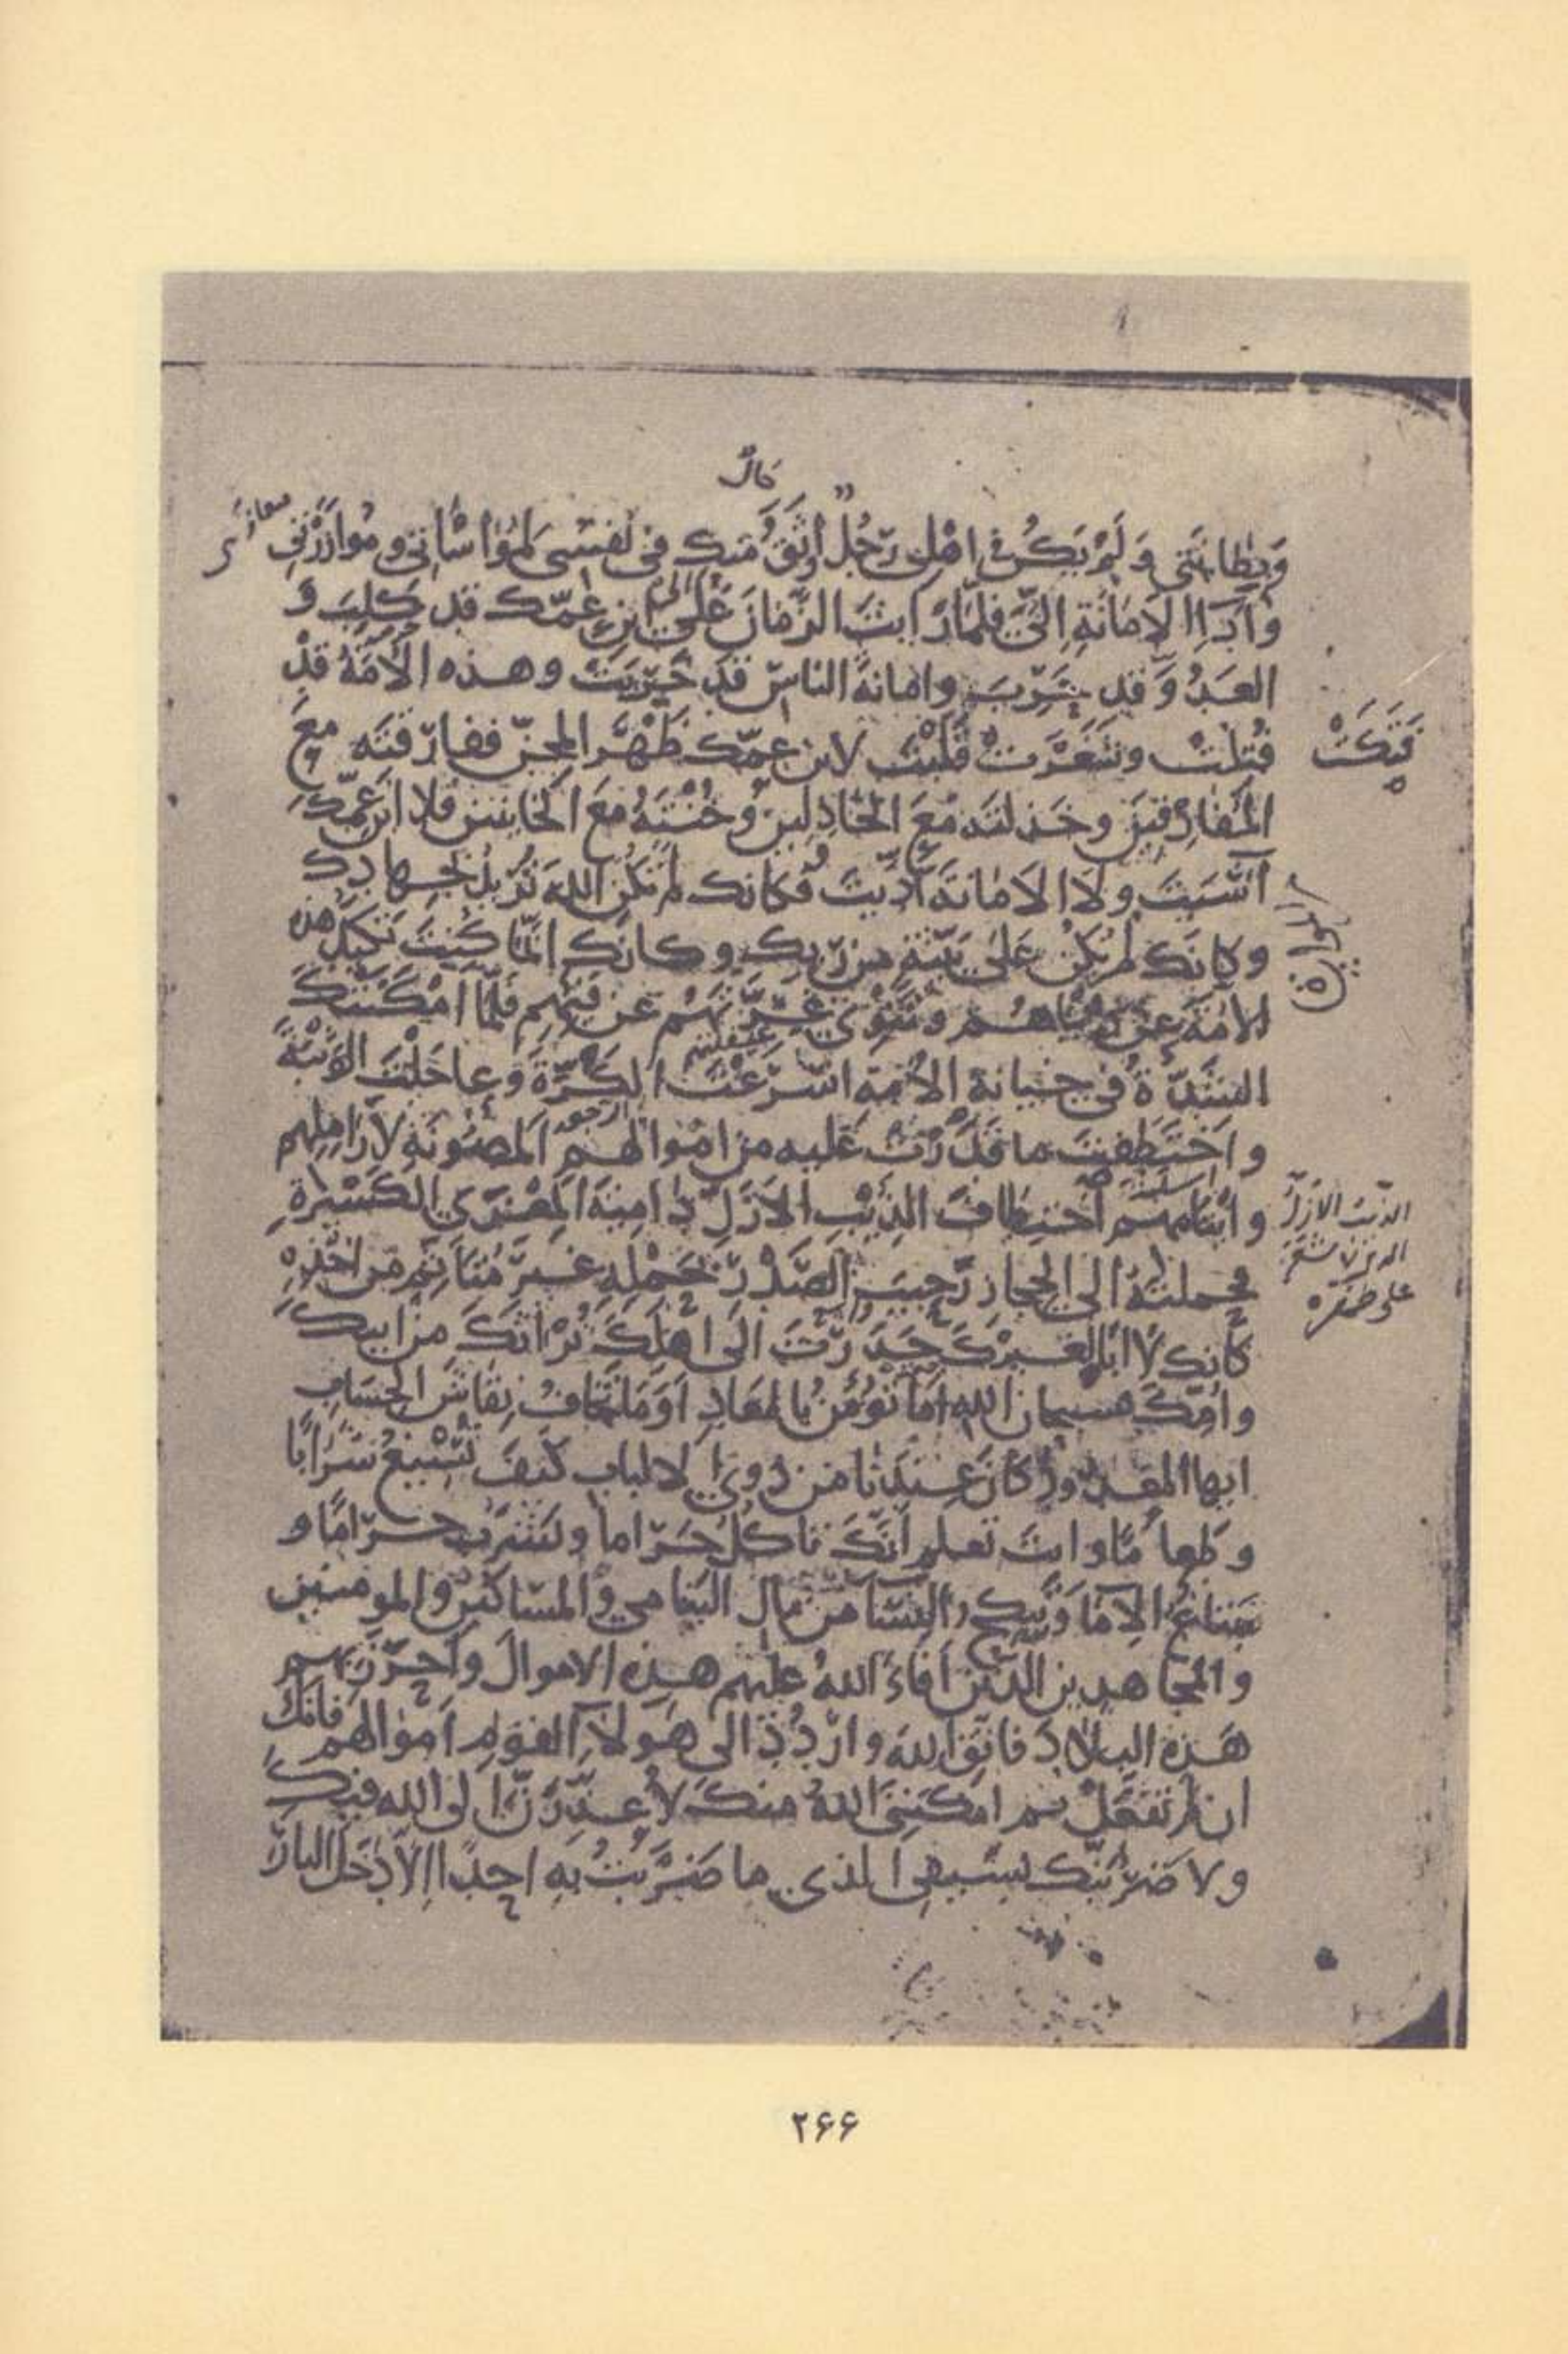 كان
وَبِطَانَتي وَلَمْ يَكُن في اهْلى رَجُلٌ أوثَقَ مِنك في نفسى لمُواسَاتي ومُوازَرَتي
وَادَاءِ الاَمَانَةِ اِلَيَّ فلمّا رَايتَ الزَّمانَ عَلى ابن عمّك قد كلِبَ وَ
العَدُوَّ قد حَرِبَ وامانةَ الناسِ قد خَزِيَت وهذه الأُمّةَ قدْ
فَنَكَتْ
فتكت وشَغَرَت قَلَبْتَ لابن عمّك ظَهْرَ المجنّ ففارقتَه معَ
المُفَارِقينَ وخَذلتَه مَعَ الخَاذِلينَ وخُنْتَهُ مَعَ الخاينين فلا ابنَ عمّكَ
آسَيتَ ولَا الاَمانَةَ ادّيتَ وَكانك لم تَكُنِ اللهَ تُريدُ بجهادِك
وكانك لم تكُنْ على بيّنةٍ من رّبك وكانك انّما كُنتَ تكيدُ هذه
الاُمةَ عن دُنْيَاهُم وتَنْوِي غِرّتَهُمْ عن فَيْئِهم فلمّا امْكَنَتْكَ
الشدّةُ في خيانة الاُمة اسْرَعْتَ الكَرّةَ وعاجَلْتَ الوَثْبَةَ
واخْتَطَفتَ ما قَدَرْتَ عليه من اموالهم المصُونَةِ لاَرَامِلِهم
وايْتَامِهِم اختِطافَ الذِئْبِ الاَزَلِّ دَامِيَةَ المِعْزَي الكَسِيرةِ
الذئب الازلّ
على ظهره
فحملتَهُ الى الحجاز رَحِيبَ الصَّدْر بحَمْلِه غيرَ مُتَاَثّمٍ من اخْذِهِ
كَانك لا ابَا لغيركَ حَدَرْتَ الى اهْلِكَ تُرَاثَكَ من ابيكَ
وامّكَ فسبحان الله اَمَا تؤمِنُ بالمَعَادِ اَوَمَا تخافُ نِقَاشَ الحسَابِ
ايها المعدودُ كانَ عِنْدَنا من ذوي الالباب كيفَ تُسيغُ شَرَابًا
وطَعاماً وانت تعلم اَنّكَ تاكُلُ حَرَاما وتشرَبُ حَرَامًا و
تبتاعُ الاِمَا وتنكِحُ النسَآ من مالِ اليتامي والمسَاكين والمومنين
والمجاهدين الذين اَفاءَ اللهُ عليهم هذه الاموالَ واَحرَزَ بهم
هَذه البلادَ فاتّقِ اللهَ واردُدْ الى هَولاَءِ القومِ اَموالَهم فانّكَ
ان لم تفعَلْ ثم امكنني اللهُ منكَ لاُعْذِرَنّ الى الله فيكَ
ولاَضربَنّك بسَيفي الذي ما ضَرَبْتُ بِهِ احدًا اِلاّ دَخَلَ النارَ
۲۶۶